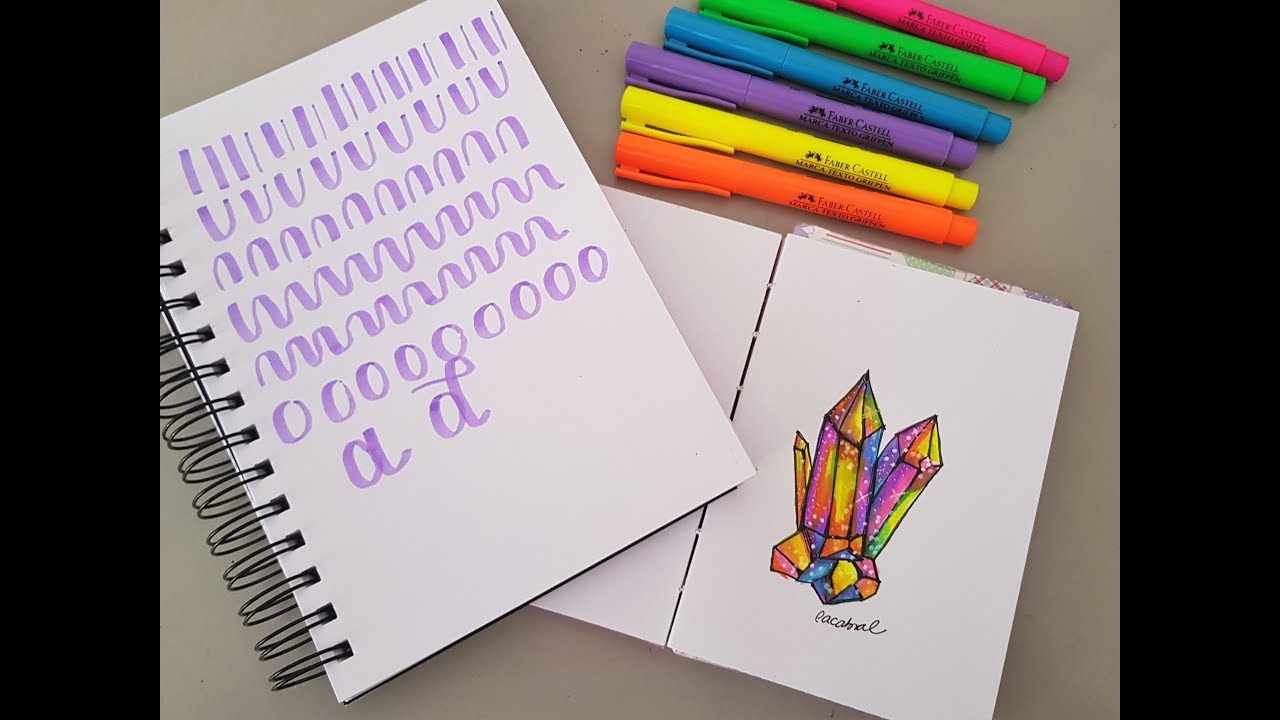 FABER CASTELL
MARCA TEXTO GRIFPEN
FABER CASTELL
MARCA TEXTO GRIFPEN
FABER CASTELL
MARCA TEXTO GRIFPEN
FABER CASTELL
MARCA TEXTO GRIFPEN
FABER CASTELL
MARCA TEXTO GRIFPEN
FABER CASTELL
MARCA TEXTO GRIFPEN
a a